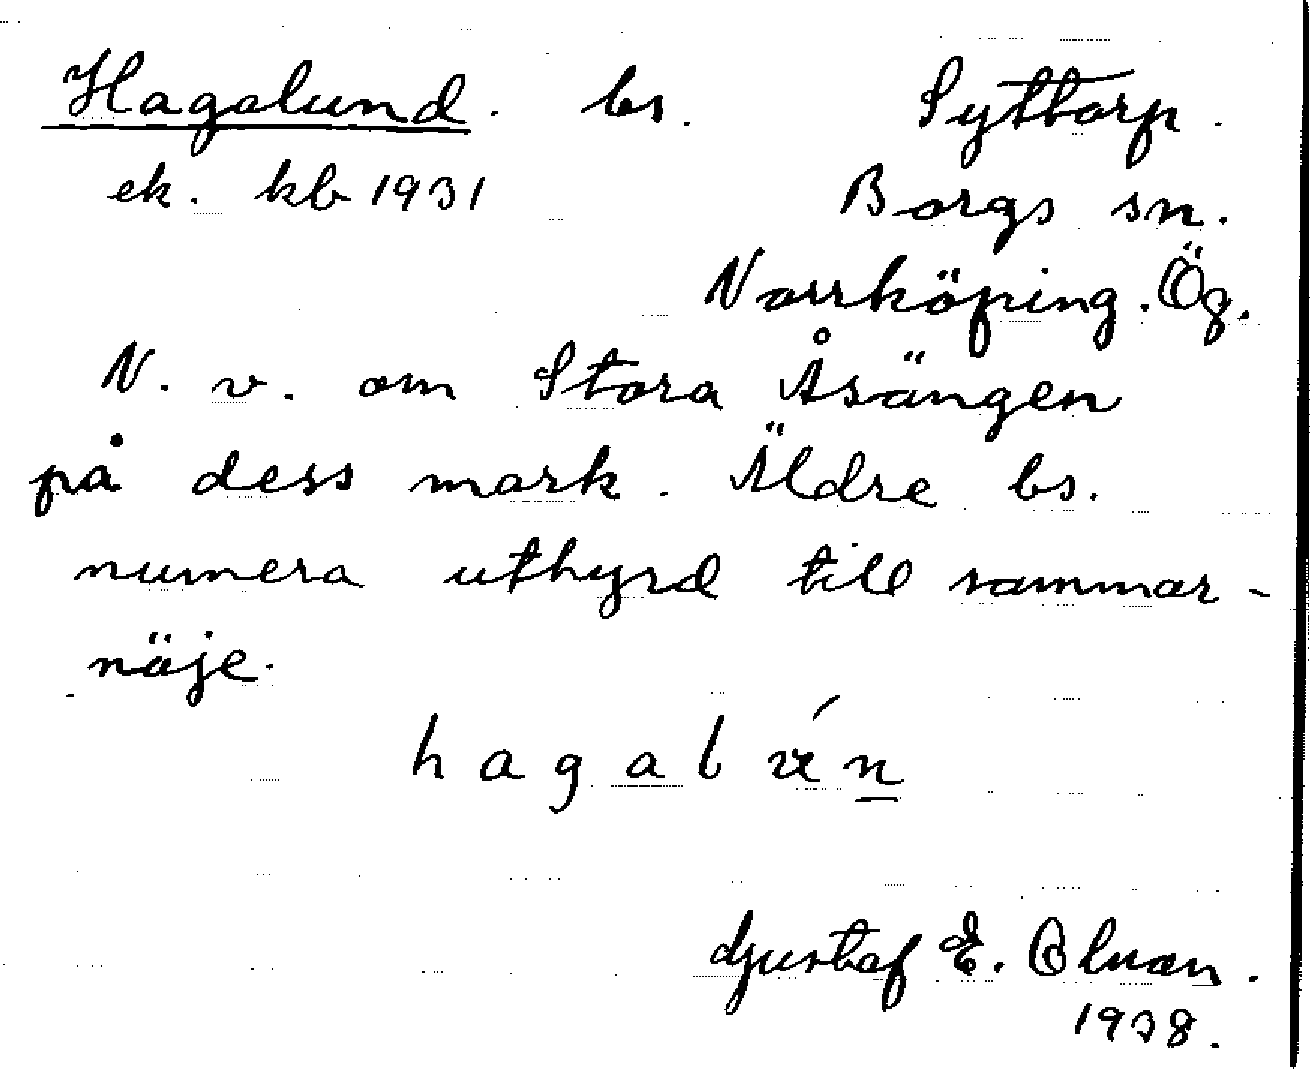 Hagalund. bs. Syttorp.
ek. kb 1931 Borgs sn.
Norrköping. Ög.
N. v. om Stora Åsängen
på dess mark. Äldre bs.
numera uthyrd till sommar-
nöje.
Gustaf E. Olson.
1938.